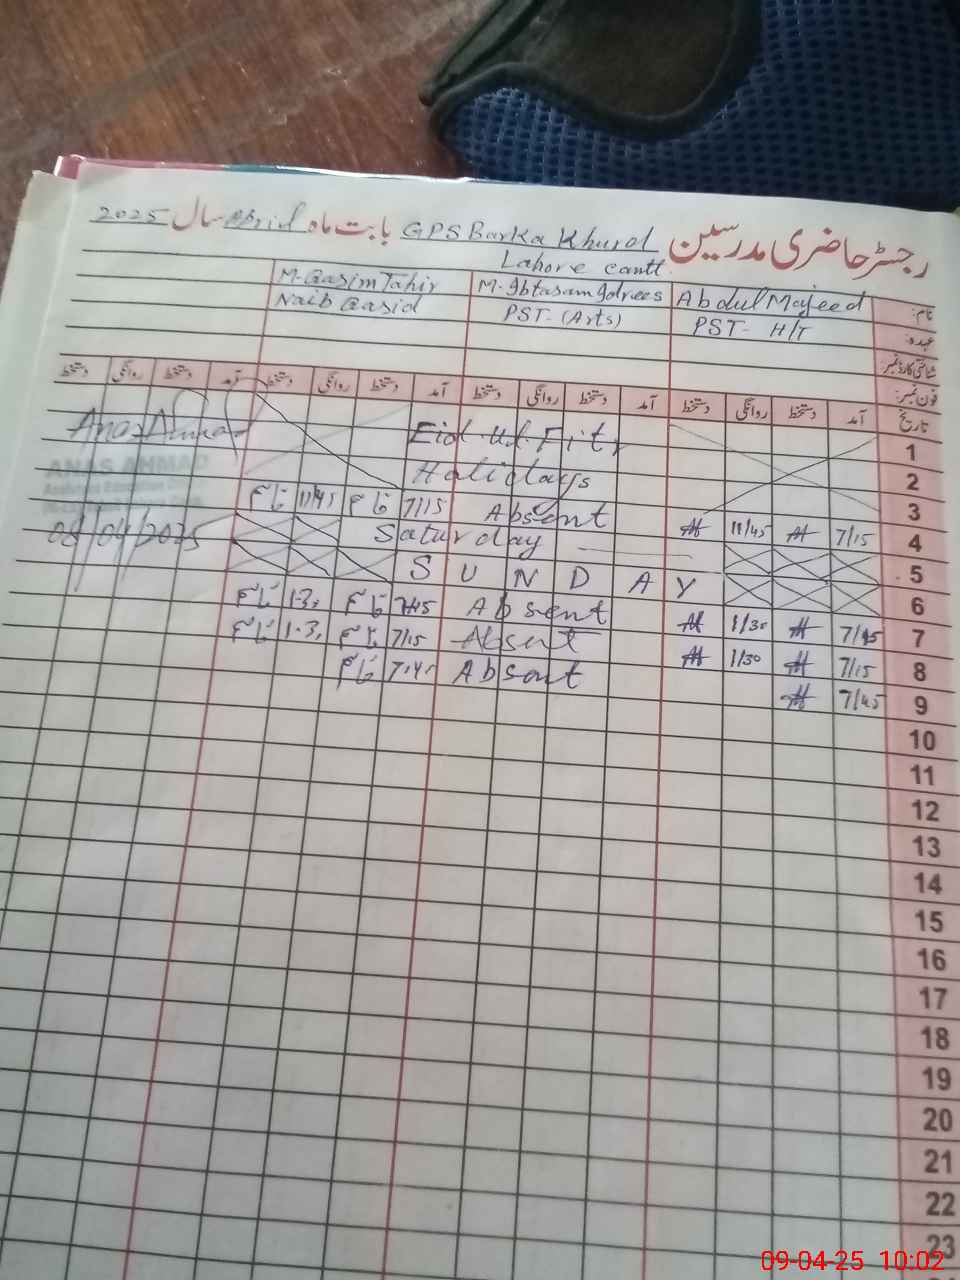 رجسٹر حاضری مدرسین GPS Barka Khurd بابت ماہ April سال 2025
Lahore cantt
نام: Abdul Majeed M. Ibtasam Idrees M. Qasim Tahir
عہدہ: PST- H/T PST-(Arts) Naib Qasid
شناختی کارڈ نمبر:
فون نمبر:
تاریخ آمد دستخط روانگی دستخط آمد دستخط روانگی دستخط آمد دستخط روانگی دستخط آمد دستخط روانگی دستخط
1 Eid-Ul-Fitr Anas Ahmad
2 Holidays ANAS AHMAD
3 Absent 7/15 11/45
4 7/15 11/45 Saturday 08/04/2025
5 S U N D A Y
6 Absent 7/45 1-3,
7 7/45 1/30 Absent 7/15 1-3,
8 7/15 1/30 Absent
9 7/45
10
11
12
13
14
15
16
17
18
19
20
21
22
23
09-04-25 10:02